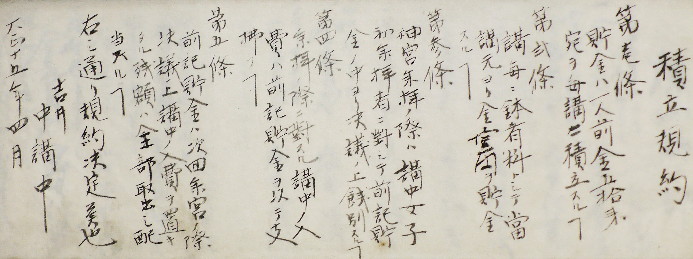 積立規約
第壱條
貯金ハ一人前金五拾銭
宛ヲ毎講ニ積立スルヿ
第弐條
講毎ニ詠者拝トシテ當
講元ヨリ金壹圓ヲ貯金
スルヿ
第参條
神宮参拝ノ際ハ講中女子
初参拝者ニ對シテ前記貯
金ノ中ヨリ決議上餞別スルヿ
第四條
参拝ノ際ニ對スル講中ノ入
費ハ前記貯金ヲ以テ支
拂フヿ
第五條
前記貯金ハ次回参宮ノ際
決議上講中ノ入費ヲ置キ
タル残額ハ全部取出シ配
当スルヿ
右之通リ規約決定候也
吉井
中講中
大正十五年四月